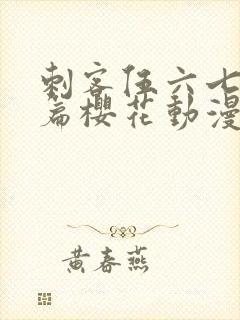 刺客伍六七
篇櫻花動漫
黄春燕